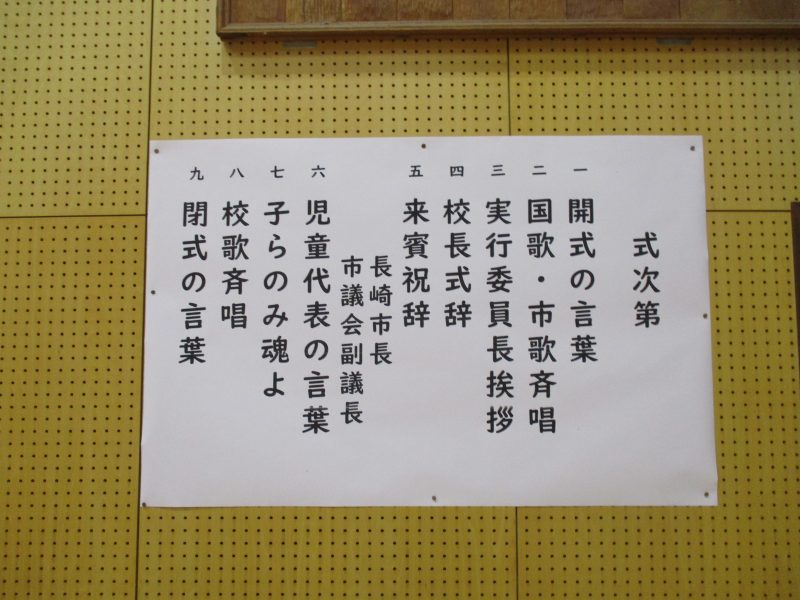 式次第
一 開式の言葉
二 国歌・市歌斉唱
三 実行委員長挨拶
四 校長式辞
五 来賓祝辞
長崎市長
市議会副議長
六 児童代表の言葉
七 子らのみ魂よ
八 校歌斉唱
九 閉式の言葉